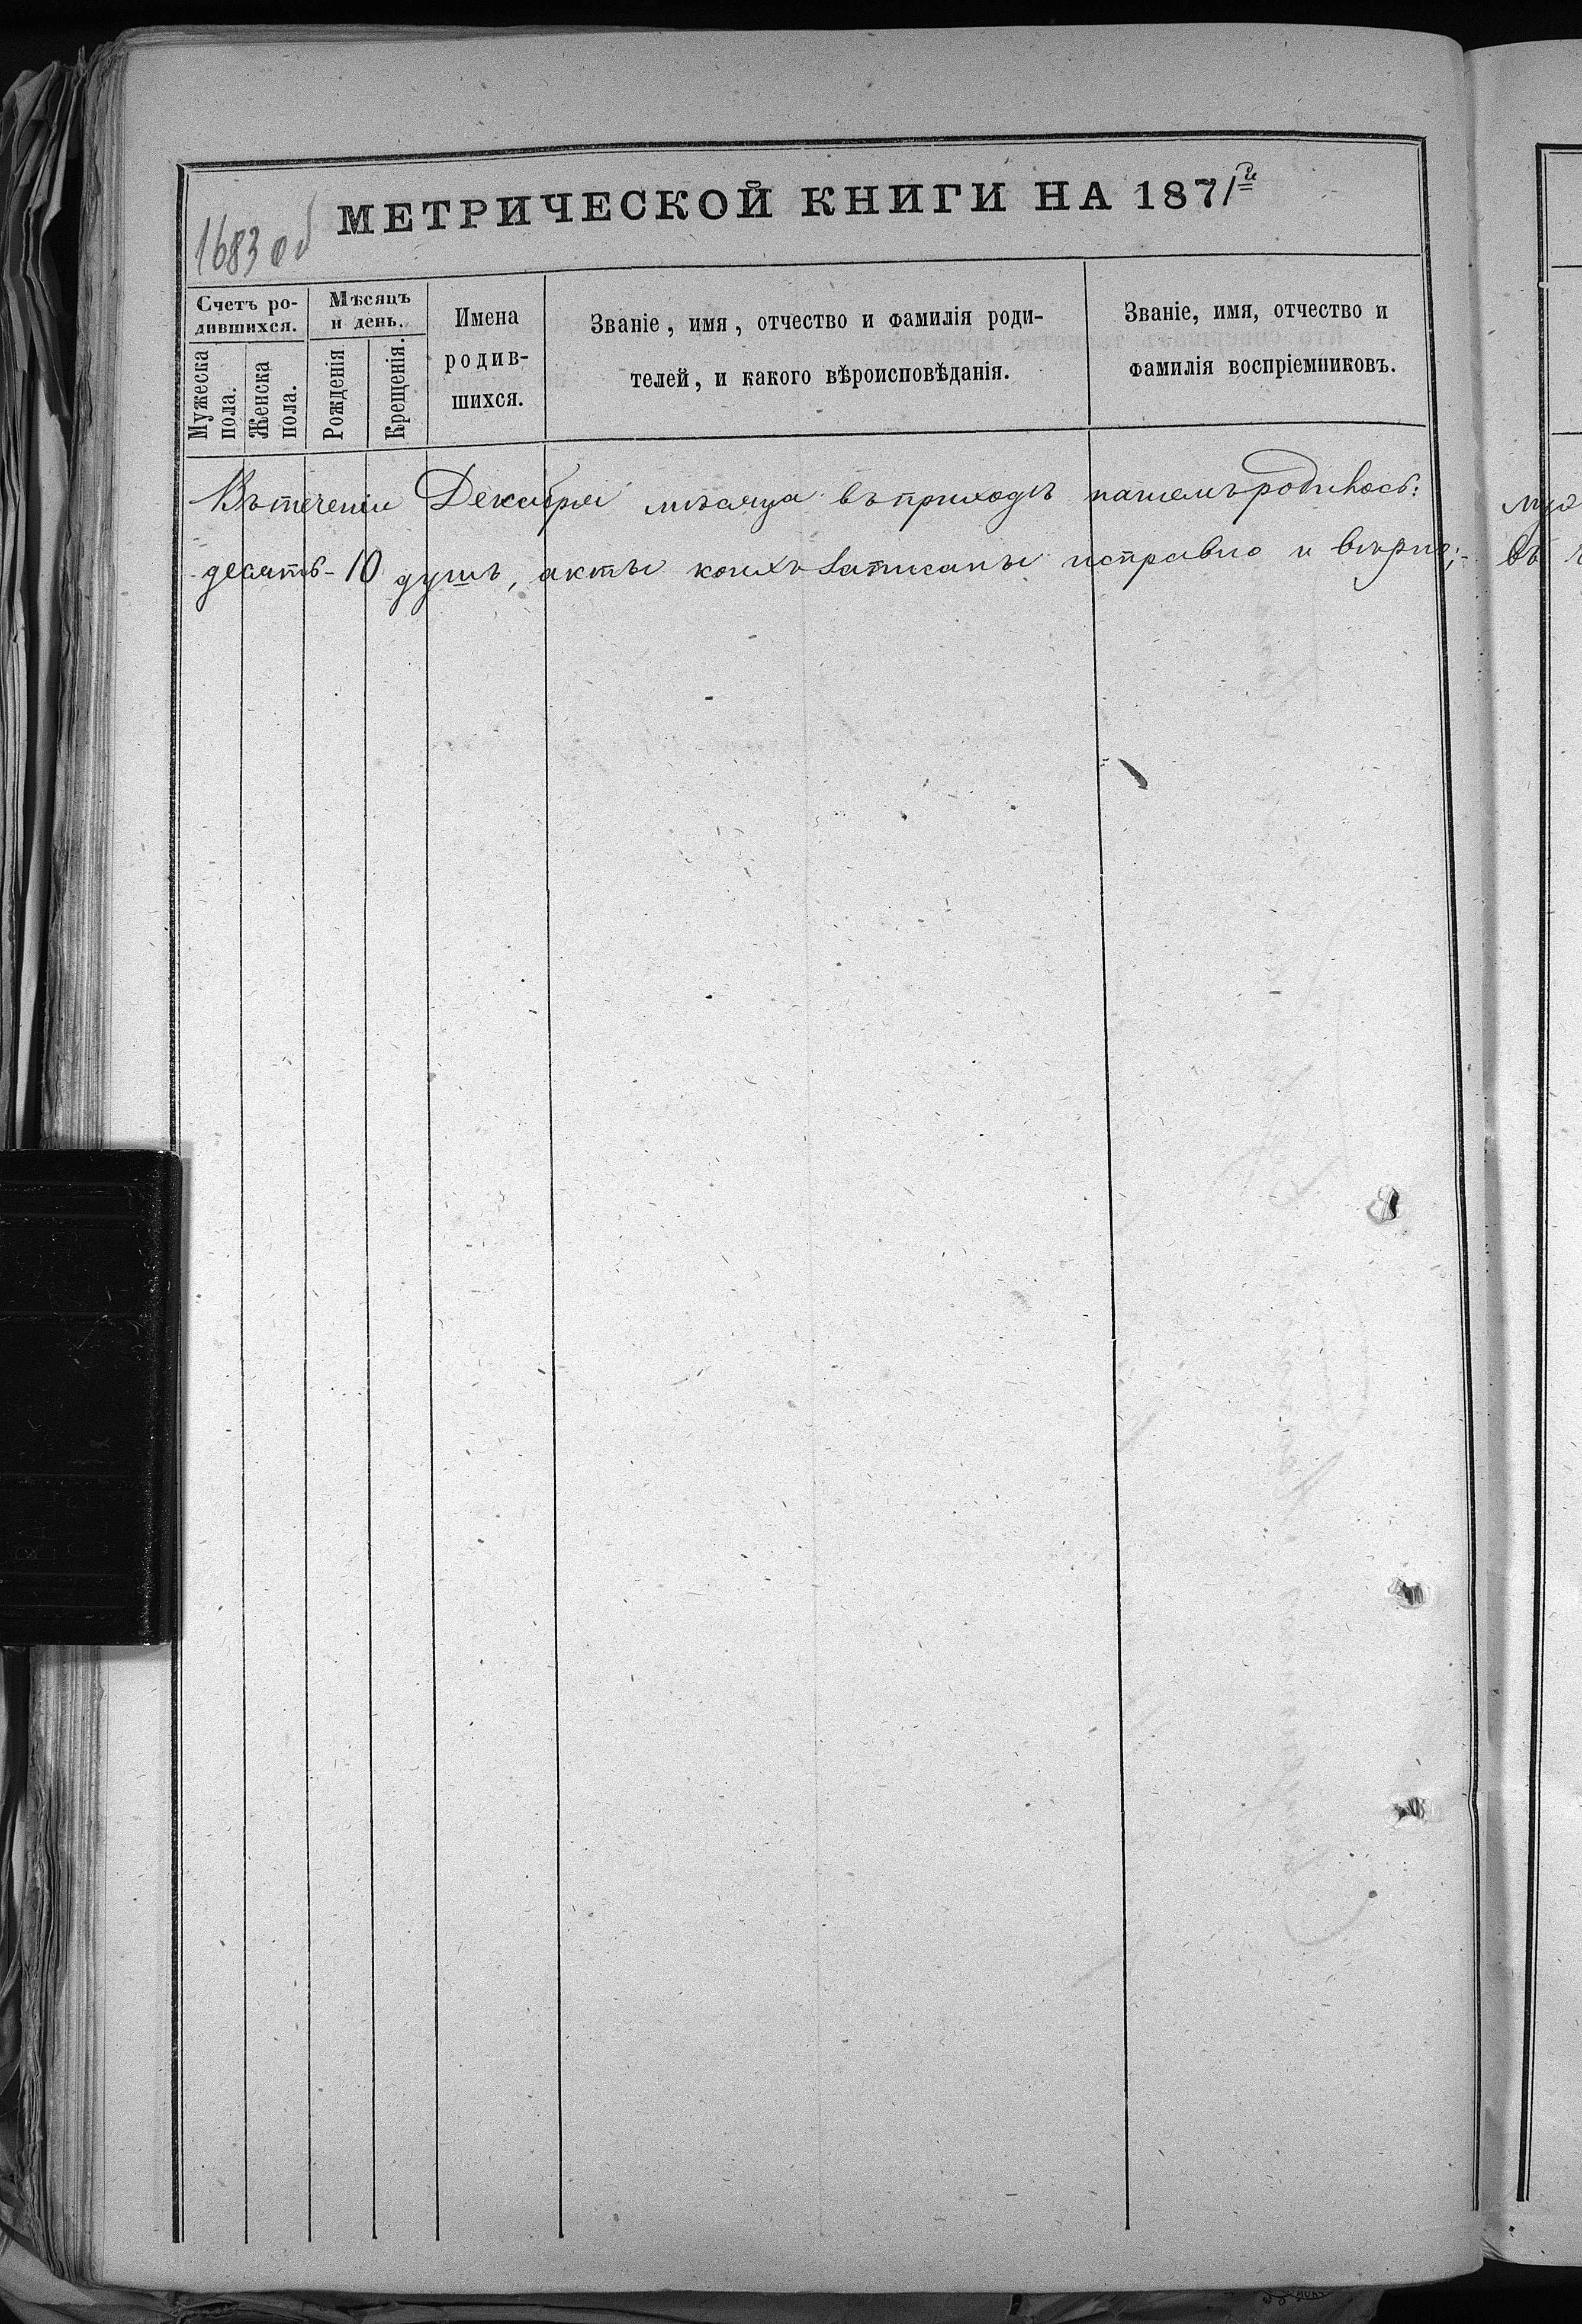 1683 об
МЕТРИЧЕСКОЙ КНИГИ НА 1871й
Счетъ ро-
дившихся.
Мѣсяцъ
и день.
Мужеска
пола.
Женска
пола.
Рожденія
Крещенія.
Имена
родив-
шихся.
Званіе, имя, отчество и фамилія роди-
телей, и какого вѣроисповѣданія.
Званіе, имя, отчество и
фамилія воспріемниковъ.
Въ теченіи Декабря мѣсяца въ приходѣ нашемъ родилось:
десять - 10 душъ, акты коихъ записаны исправно и вѣрно;-
въ